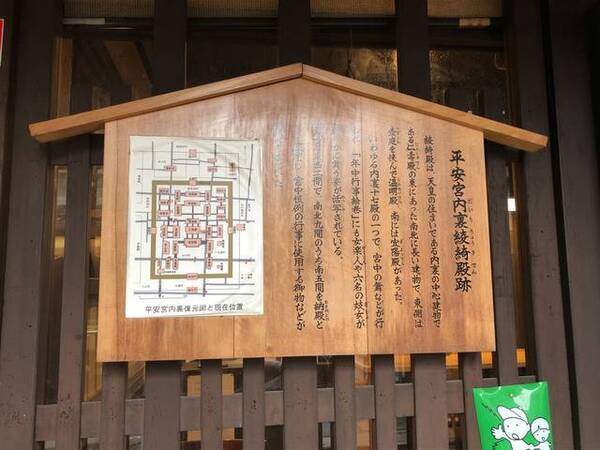 平安宮内裏綾綺殿跡
綾綺殿は、天皇の住まいである内裏の中心建物で
ある仁寿殿の東にあった南北に長い建物で、東側は
庭を挟んで温明殿、南には宜陽殿があった。
いわゆる内裏十七殿の一つで、宮中の舞などが行
「年中行事絵巻」にも女楽人や六名の妓女が
舞う姿が活写されている。
三間で、南北九間のうち南五間を納殿と
宮中恒例の行事に使用する御物などが
平安宮内裏復元図と現在位置